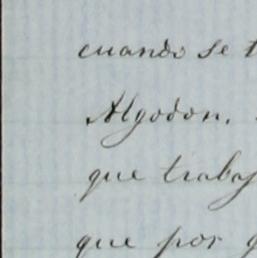 cuando se
Algodon.
que trabaj
que por